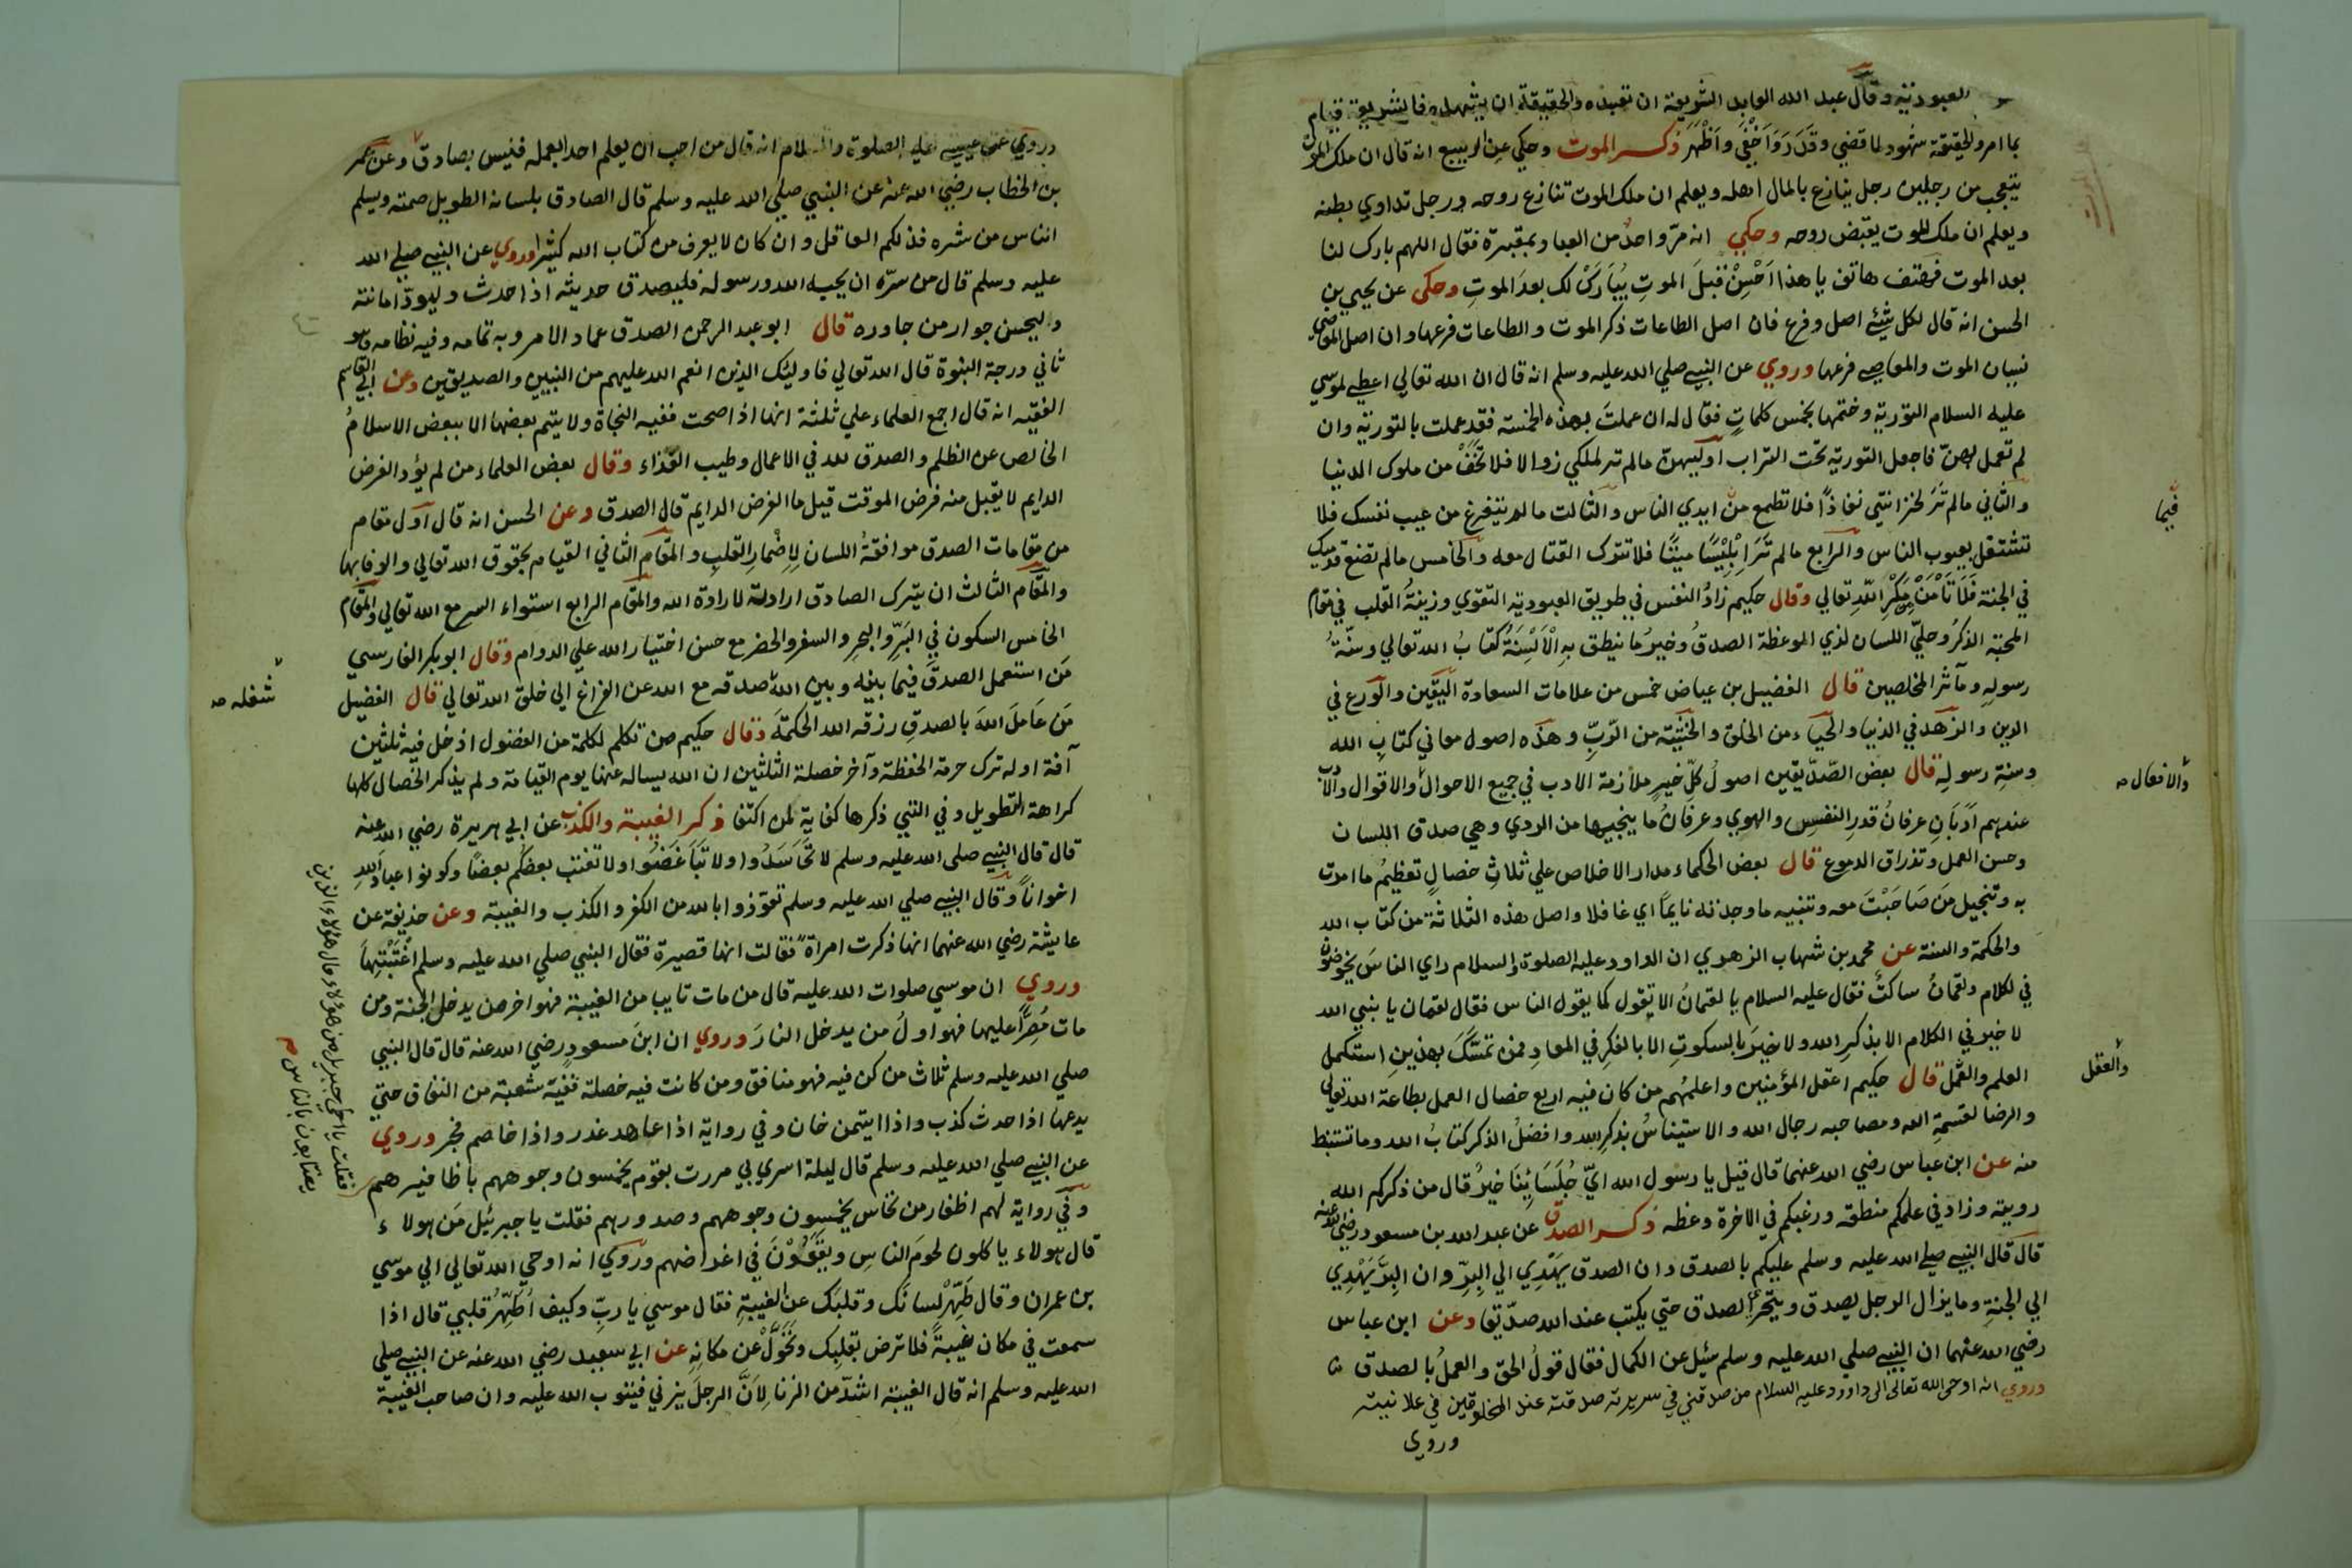 العبودية وقال عبد الله العابد الشريعة ان تعبده والحقيقة ان تشهده فالشريعة قيام
بما امر والحقيقة شهود لما قضي وقَدَّرَ وَاَخْفَي واَظْهَرَ ذكر الموت وحكي عن الربيع انه قال ان ملك الموت
يتعجب من رجلين رجل ينازع بالمال اهله ويعلم ان ملك الموت تنازع روحه ورجل تداوي بطنه
ويعلم ان ملك الموت يقبض روحه وحكي انه مرّ واحدٌ من العباد بمقبرة فقال اللهم بارك لنا
بعد الموت فهتف هاتف يا هذا اَحْسِنْ قبلَ الموتِ يُبَارَكْ لك بعدَ الموتِ وحكي عن يحيي بن
الحسن انه قال لكل شيئ اصل وفرع فان اصل الطاعات ذكر الموت والطاعات فرعها وان اصل المعاصي
نسيان الموت والمعاصي فرعها وروي عن النبي صلي الله عليه وسلم انه قال ان الله تعالي اعطي لموسي
عليه السلام التورية وختمها بخمس كلماتٍ فقال له ان عملتَ بهذه الخمسة فقد عملت بالتورية وان
لم تعمل بهنّ فاجعل التورية تحت التراب اوليهن مالم تر لملكي زوالا فلا تَخَفْ من ملوك الدنيا
والثاني مالم تَرَ لخزانتي نفاذًا فلا تطمع من ايدي الناس والثالث مالم تتفرغ من عيب نفسك فلا
تشتغل بعيوب الناس والرابع مالم تَرَ اِبْلِيْسًا ميتًا فلا تترك القتال معه والخامس مالم تضع قدميك
في الجنة فَلَا تَأْمَنْ مَكْرَ اللّٰهِ تعالي وقال حكيم زادُ النفس في طريق العبودية التقوي وزينةُ القلب في مقام
المحبة الذكرُ وحليّ اللسان لذي الموعظة الصدقُ وخيرُ ما ينطق بِهِ الْاَلْسِنَةُ كتابُ الله تعالي وسنّةُ
رسولِهِ ومآثر المخلصين قال الفضيل بن عياض خمس من علامات السعادة اليقين والورع في
الدين والزهد في الدنيا والحياء من الخلق والخشية من الرّبِّ وهذه اصول معاني كتابِ الله
وسنةِ رسولِهِ قال بعض الصّدّيقين اصولُ كلِّ خيرٍ ملازمة الادب في جميع الاحوال والاقوال والادب
عندهم اَدَبَانِ عرفانُ قدرِ النفسِ والهوي وعرفانُ ما ينجيها من الردي وهي صدق اللسان
وحسن العمل وتذراق الدموع قال بعض الحكماء مدار الاخلاص علي ثلاثِ خصالٍ تعظيمُ ما امرت
به وتبجيل مَن صَاحَبْتَ معه وتنبيه ما وجدته نايماً اي غافلا واصل هذه الثلاثة من كتاب الله
والحكمة والسنة عن محمد بن شهاب الزهري ان الداود عليه الصلوة والسلام راي الناسَ يخوضون
في الكلام ولقمانُ ساكتٌ فقال عليه السلام يا لقمانُ الا تقول كما يقول الناس فقال لقمان يا نبي الله
لا خير في الكلام الا بذكر الله ولا خيرَ بالسكوتِ الا بالفكرِ في المعادِ فمن تمسَّكَ بهذينِ استكمل
العلم والعمل قال حكيم اعقل المؤمنين واعلمُهم من كان فيه اربع خصال العمل بطاعة الله تعالي
والرضا لقسمةِ الله ومصاحبه رجال الله والاستيناسُ بذكرِ الله وافضلُ الذكر كتابُ الله وما تستنبط
منه عن ابن عباس رضي الله عنهما قال قيل يا رسول الله ايّ جُلَسَائِنَا خيرٌ قال من ذكركم الله
رويته وزاد في علمكم منطقه ورغبكم في الاخرة وعظه ذكر الصدق عن عبد الله بن مسعود رضي الله عنه
قال قال النبي صلي الله عليه وسلم عليكم بالصدق وان الصدق يَهْدِي الي البِرِّ وان البِرَّ يَهْدِي
الي الجنةِ وما يزال الرجل يصدق ويتحرّي الصدق حتي يكتب عند الله صدّيقا وعن ابن عباس
رضي الله عنهما ان النبي صلي الله عليه وسلم سئل عن الكمال فقال قولُ الحق والعملُ بالصدق
وروي انه اوحى الله تعالى الى داود عليه السلام من صدقني في سريرته صدقته عند المخلوقين في علانيته
وروي
فيما
والافعال صح
والعقل
وروي عن عيسي عليه الصلوة والسلام انه قال من احب ان يعلم احد العمله فليس بصادق وعن عمر
بن الخطاب رضي الله عنه عن النبي صلي الله عليه وسلم قال الصادق بلسانه الطويل صمته ويسلم
الناس من شره فذلكم العاقل وان كان لا يعرف من كتاب الله كثيرا وروي عن النبي صلي الله
عليه وسلم قال من سرّه ان يحبه الله ورسوله فليصدق حديثه اذا حدث وليودّ امانته
وليحسن جوار من جاوره قال ابو عبد الرحمن الصدق عماد الامر وبه تمامه وفيه نظامه وهو
ثاني درجة النبوة قال الله تعالي فاوليك الذين انعم الله عليهم من النبيين والصديقين وعن ابي القاسم
الفقيه انه قال اجمع العلماء علي ثلثة انها اذا صحت ففيه النجاة ولا يتم بعضها الا ببعض الاسلامُ
الخالص عن الظلم والصدق لله في الاعمال وطيب الغذاء وقال بعض العلماء من لم يؤد الفرض
الدايم لا يقبل منه فرض الموقت قيل ما الفرض الدايم قال الصدق وعن الحسن انه قال اول مقام
من مقامات الصدق موافقةُ اللسان لِاِضْمارِ القلبِ والمقام الثاني القيام بحقوق الله تعالي والوفا بها
والمقام الثالث ان يترك الصادق ارادته لارادة الله والمقام الرابع استواء السر مع الله تعالي والمقام
الخامس السكون فِي البَرِّ والبحرِ والسفر والحضر مع حسن اختيار الله علي الدوام وقال ابو بكر الفارسي
مَن استعمل الصدقَ فيما بينه وبين اللهِ صدقه مع الله عن الفراغ الي خلق الله تعالي قال الفضيل
مَن عَامَلَ اللهَ بالصدقِ رزقه الله الحكمةَ وقال حكيم من تكلم لكلمة من الفضول ادخل فيه ثلثين
آفة اوله ترك حرمة الحفظة وآخر خصلة الثلثين ان الله يساله عنها يوم القيامة ولم يذكر الخصال كلها
كراهة التطويل وفي التي ذكرها كفاية لمن اكتفا ذكر الغيبة والكذب عن ابي هريرة رضي الله عنه
قال قال النبي صلى الله عليه وسلم لا تَحَاسَدُوا ولا تَبَاغَضُوا ولا تغتب بعضُكم بعضًا وكونوا عبادَ اللهِ
اخواناً وقال النبي صلي الله عليه وسلم تعوّذوا بالله من الكفر والكذب والغيبة وعن حذيفة عن
عايشة رضي الله عنهما انها ذكرت امراةً فقالت انها قصيرة فقال النبي صلي الله عليه وسلم اغْتَبْتِهَا
وروي ان موسي صلوات الله عليه قال من مات تايبا من الغيبة فهو اخر من يدخل الجنة ومن
مات مُصِرًّا عليها فهو اولُ من يدخل النارَ وروي ان ابنَ مسعودٍ رضي الله عنه قال قال النبي
صلي الله عليه وسلم ثلاث من كن فيه فهو منافق ومن كانت فيه خصلة ففيه شعبة من النفاق حتي
يدعها اذا حدث كذب واذا ايتمن خان وفي رواية اذا عاهد غدر واذا خاصم فجر وروي
عن النبي صلي الله عليه وسلم قال ليلة اسري بي مررت بقوم يخمسون وجوههم باظافيرهم
وفي رواية لهم اظفار من نحاس يخمسون وجوههم وصدورهم فقلت يا جبرئيل مَن هولاء
قال هولاء ياكلون لحومَ الناسِ ويَقَعُوْنَ في اعراضهم وروي انه اوحي الله تعالي الي موسي
بن عمران وقال طَهِّرْ لسانَك وقلبَك عن الغيبةِ فقال موسي يا ربِّ وكيف اُطَهِّرُ قلبي قال اذا
سمعت في مكان غيبةً فلا ترض بقلبِك وتَحَوَّلْ عن مكانِهِ عن ابي سعيد رضي الله عنه عن النبي صلي
الله عليه وسلم انه قال الغيبة اشدّ من الزنا لِاَنَّ الرجلَ يزني فيتوب الله عليه وان صاحب الغيبة
شغله صح
فقلت يا اخي جبريل من هؤلاء قال هؤلاء الذين
يغتابون الناس